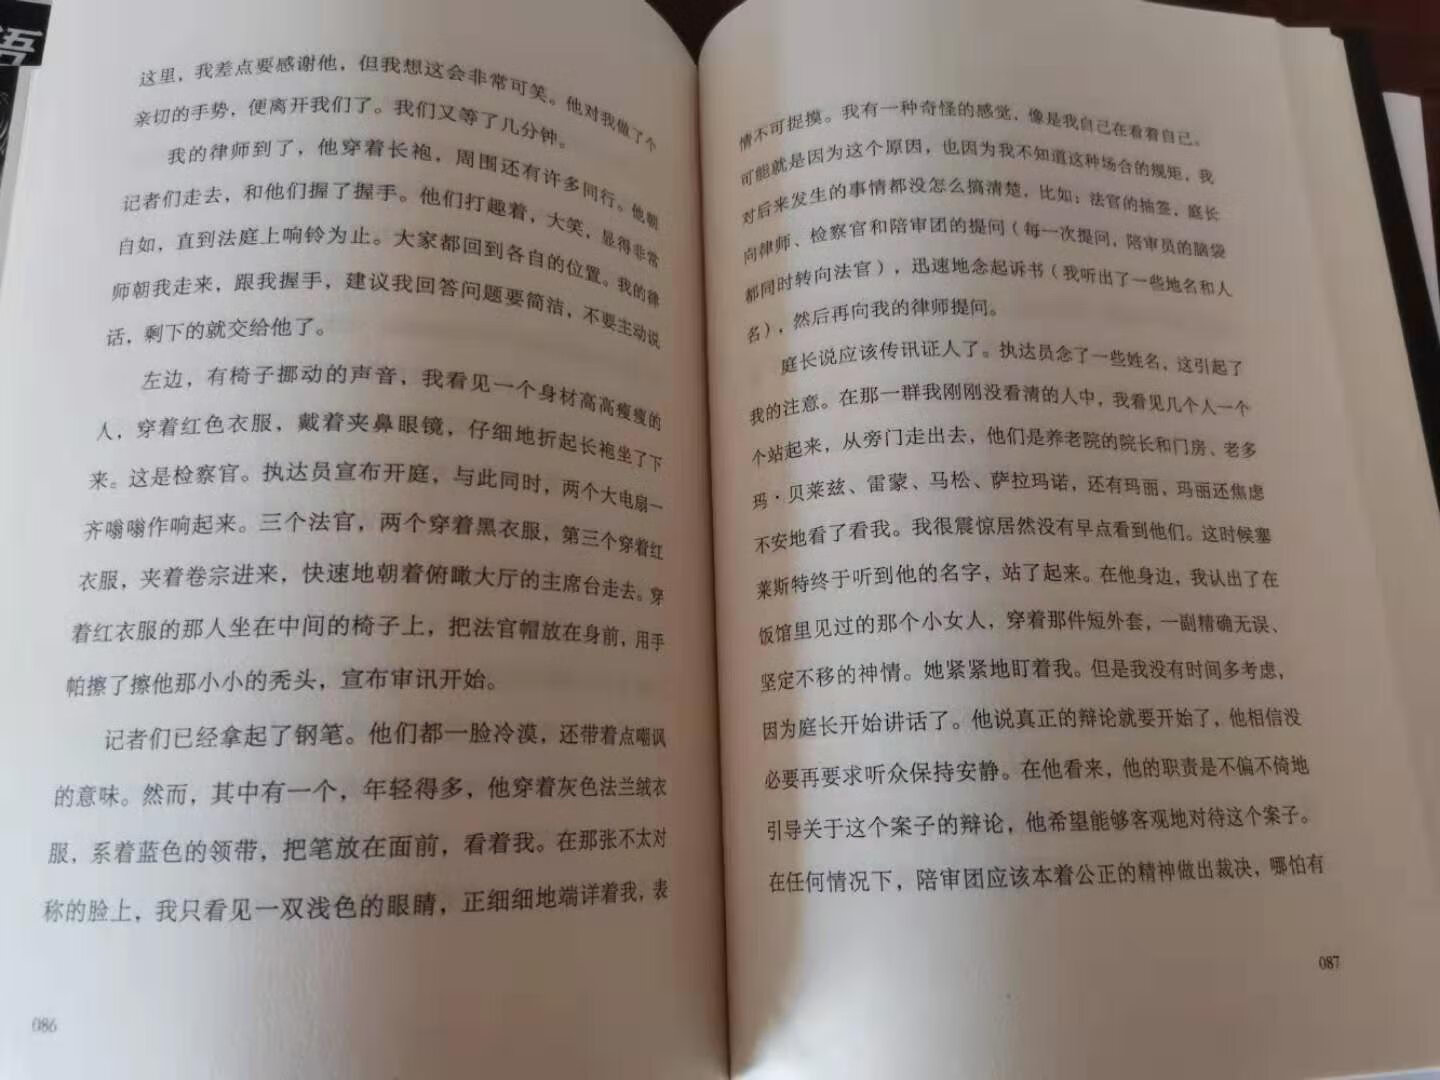 语
这里，我差点要感谢他，但我想这会非常可笑。他对我做了个
亲切的手势，便离开我们了。我们又等了几分钟。
我的律师到了，他穿着长袍，周围还有许多同行。他朝
记者们走去，和他们握了握手。他们打趣着，大笑，显得非常
自如，直到法庭上响铃为止。大家都回到各自的位置。我的律
师朝我走来，跟我握手，建议我回答问题要简洁，不要主动说
话，剩下的就交给他了。
左边，有椅子挪动的声音，我看见一个身材高高瘦瘦的
人，穿着红色衣服，戴着夹鼻眼镜，仔细地折起长袍坐了下
来。这是检察官。执达员宣布开庭，与此同时，两个大电扇一
齐嗡嗡作响起来。三个法官，两个穿着黑衣服，第三个穿着红
衣服，夹着卷宗进来，快速地朝着俯瞰大厅的主席台走去。穿
着红衣服的那人坐在中间的椅子上，把法官帽放在身前，用手
帕擦了擦他那小小的秃头，宣布审讯开始。
记者们已经拿起了钢笔。他们都一脸冷漠，还带着点嘲讽
的意味。然而，其中有一个，年轻得多，他穿着灰色法兰绒衣
服，系着蓝色的领带，把笔放在面前，看着我。在那张不太对
称的脸上，我只看见一双浅色的眼睛，正细细地端详着我，表
086
情不可捉摸。我有一种奇怪的感觉，像是我自己在看着自己。
可能就是因为这个原因，也因为我不知道这种场合的规矩，我
对后来发生的事情都没怎么搞清楚，比如：法官的抽签，庭长
向律师、检察官和陪审团的提问（每一次提问，陪审员的脑袋
都同时转向法官），迅速地念起诉书（我听出了一些地名和人
名），然后再向我的律师提问。
庭长说应该传讯证人了。执达员念了一些姓名，这引起了
我的注意。在那一群我刚刚没看清的人中，我看见几个人一个
个站起来，从旁门走出去，他们是养老院的院长和门房、老多
玛·贝莱兹、雷蒙、马松、萨拉玛诺，还有玛丽，玛丽还焦虑
不安地看了看我。我很震惊居然没有早点看到他们。这时候塞
莱斯特终于听到他的名字，站了起来。在他身边，我认出了在
饭馆里见过的那个小女人，穿着那件短外套，一副精确无误、
坚定不移的神情。她紧紧地盯着我。但是我没有时间多考虑，
因为庭长开始讲话了。他说真正的辩论就要开始了，他相信没
必要再要求听众保持安静。在他看来，他的职责是不偏不倚地
引导关于这个案子的辩论，他希望能够客观地对待这个案子。
在任何情况下，陪审团应该本着公正的精神做出裁决，哪怕有
087